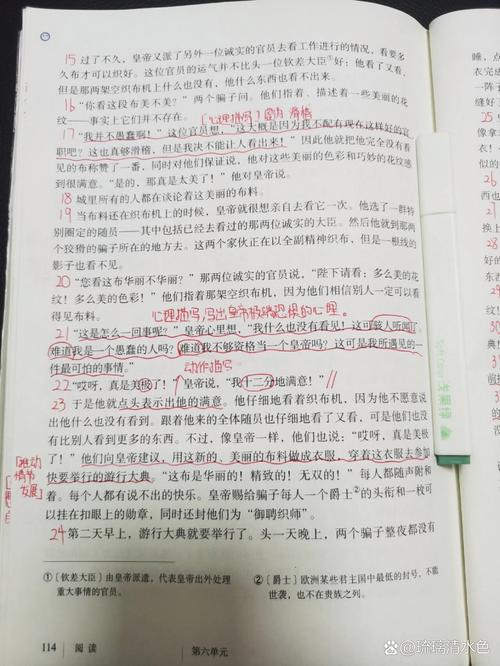 15 过了不久，皇帝又派了另外一位诚实的官员去看工作进行的情况，看要多
久布才可以织好。这位官员的运气并不比头一位钦差大臣①好；他看了又看，
但是那两架空织布机上什么也没有，他什么东西也看不出来。
16 “你看这段布美不美？”两个骗子问。他们指着、描述着一些美丽的花
纹——事实上它们并不存在。 [心理描写] 滑稽
17 “我并不愚蠢啊！”这位官员想，“这大概是因为我不配有现在这样好的官
职吧？这也真够滑稽，但是我决不能让人看出来！”因此他就把他完全没有看
见的布称赞了一番，同时对他们保证说，他对这些美丽的色彩和巧妙的花纹感
到很满意。“是的，那真是太美了！”他对皇帝说。
18 城里所有的人都在谈论着这美丽的布料。
19 当布料还在织布机上的时候，皇帝就很想亲自去看它一次。他选了一群特
别圈定的随员——其中包括已经去看过的那两位诚实的大臣。然后他就到那两
个狡猾的骗子所在的地方去。这两个家伙正在以全副精神织布，但是一根线的
影子也看不见。
20 “您看这布华丽不华丽？”那两位诚实的官员说，“陛下请看：多么美的花
纹！多么美的色彩！”他们指着那架空织布机，因为他们相信别人一定可以看
得见布料。
心理描写，写出皇帝极端恐惧的心理。
21 “这是怎么一回事呢？”皇帝心里想，“我什么也没有看见！这可骇人听闻了。
难道我是一个愚蠢的人吗？难道我不够资格当一个皇帝吗？这可是我所遇见的一
件最可怕的事情。”
动作描写
22 “哎呀，真是美极了！”皇帝说，“我十二分地满意！”
23 于是他就点头表示出他的满意。他仔细地看着织布机，因为他不愿意说
出他什么也没有看到。跟着他来的全体随员也仔细地看了又看，可是他们也没
有比别人看到更多的东西。不过，像皇帝一样，他们也说：“哎呀，真是美极
了！”他们向皇帝建议，用这新的、美丽的布料做成衣服，穿着这衣服去参加
快要举行的游行大典。“这布是华丽的！精致的！无双的！”每人都随声附和
着。每个人都有说不出的快乐。皇帝赐给骗子每人一个爵士②的头衔和一枚可
以挂在扣眼上的勋章，同时还封他们为“御聘织师”。
[推动
情节
发展]
24 第二天早上，游行大典就要举行了。头一天晚上，两个骗子整夜都没有
① [钦差大臣] 由皇帝派遣，代表皇帝出外处理
重大事情的官员。
② [爵士] 欧洲某些君主国中最低的封号，不能
世袭，也不在贵族之列。
114 阅读 第六单元
25
26
27
28
知乎 @琉璃清水色